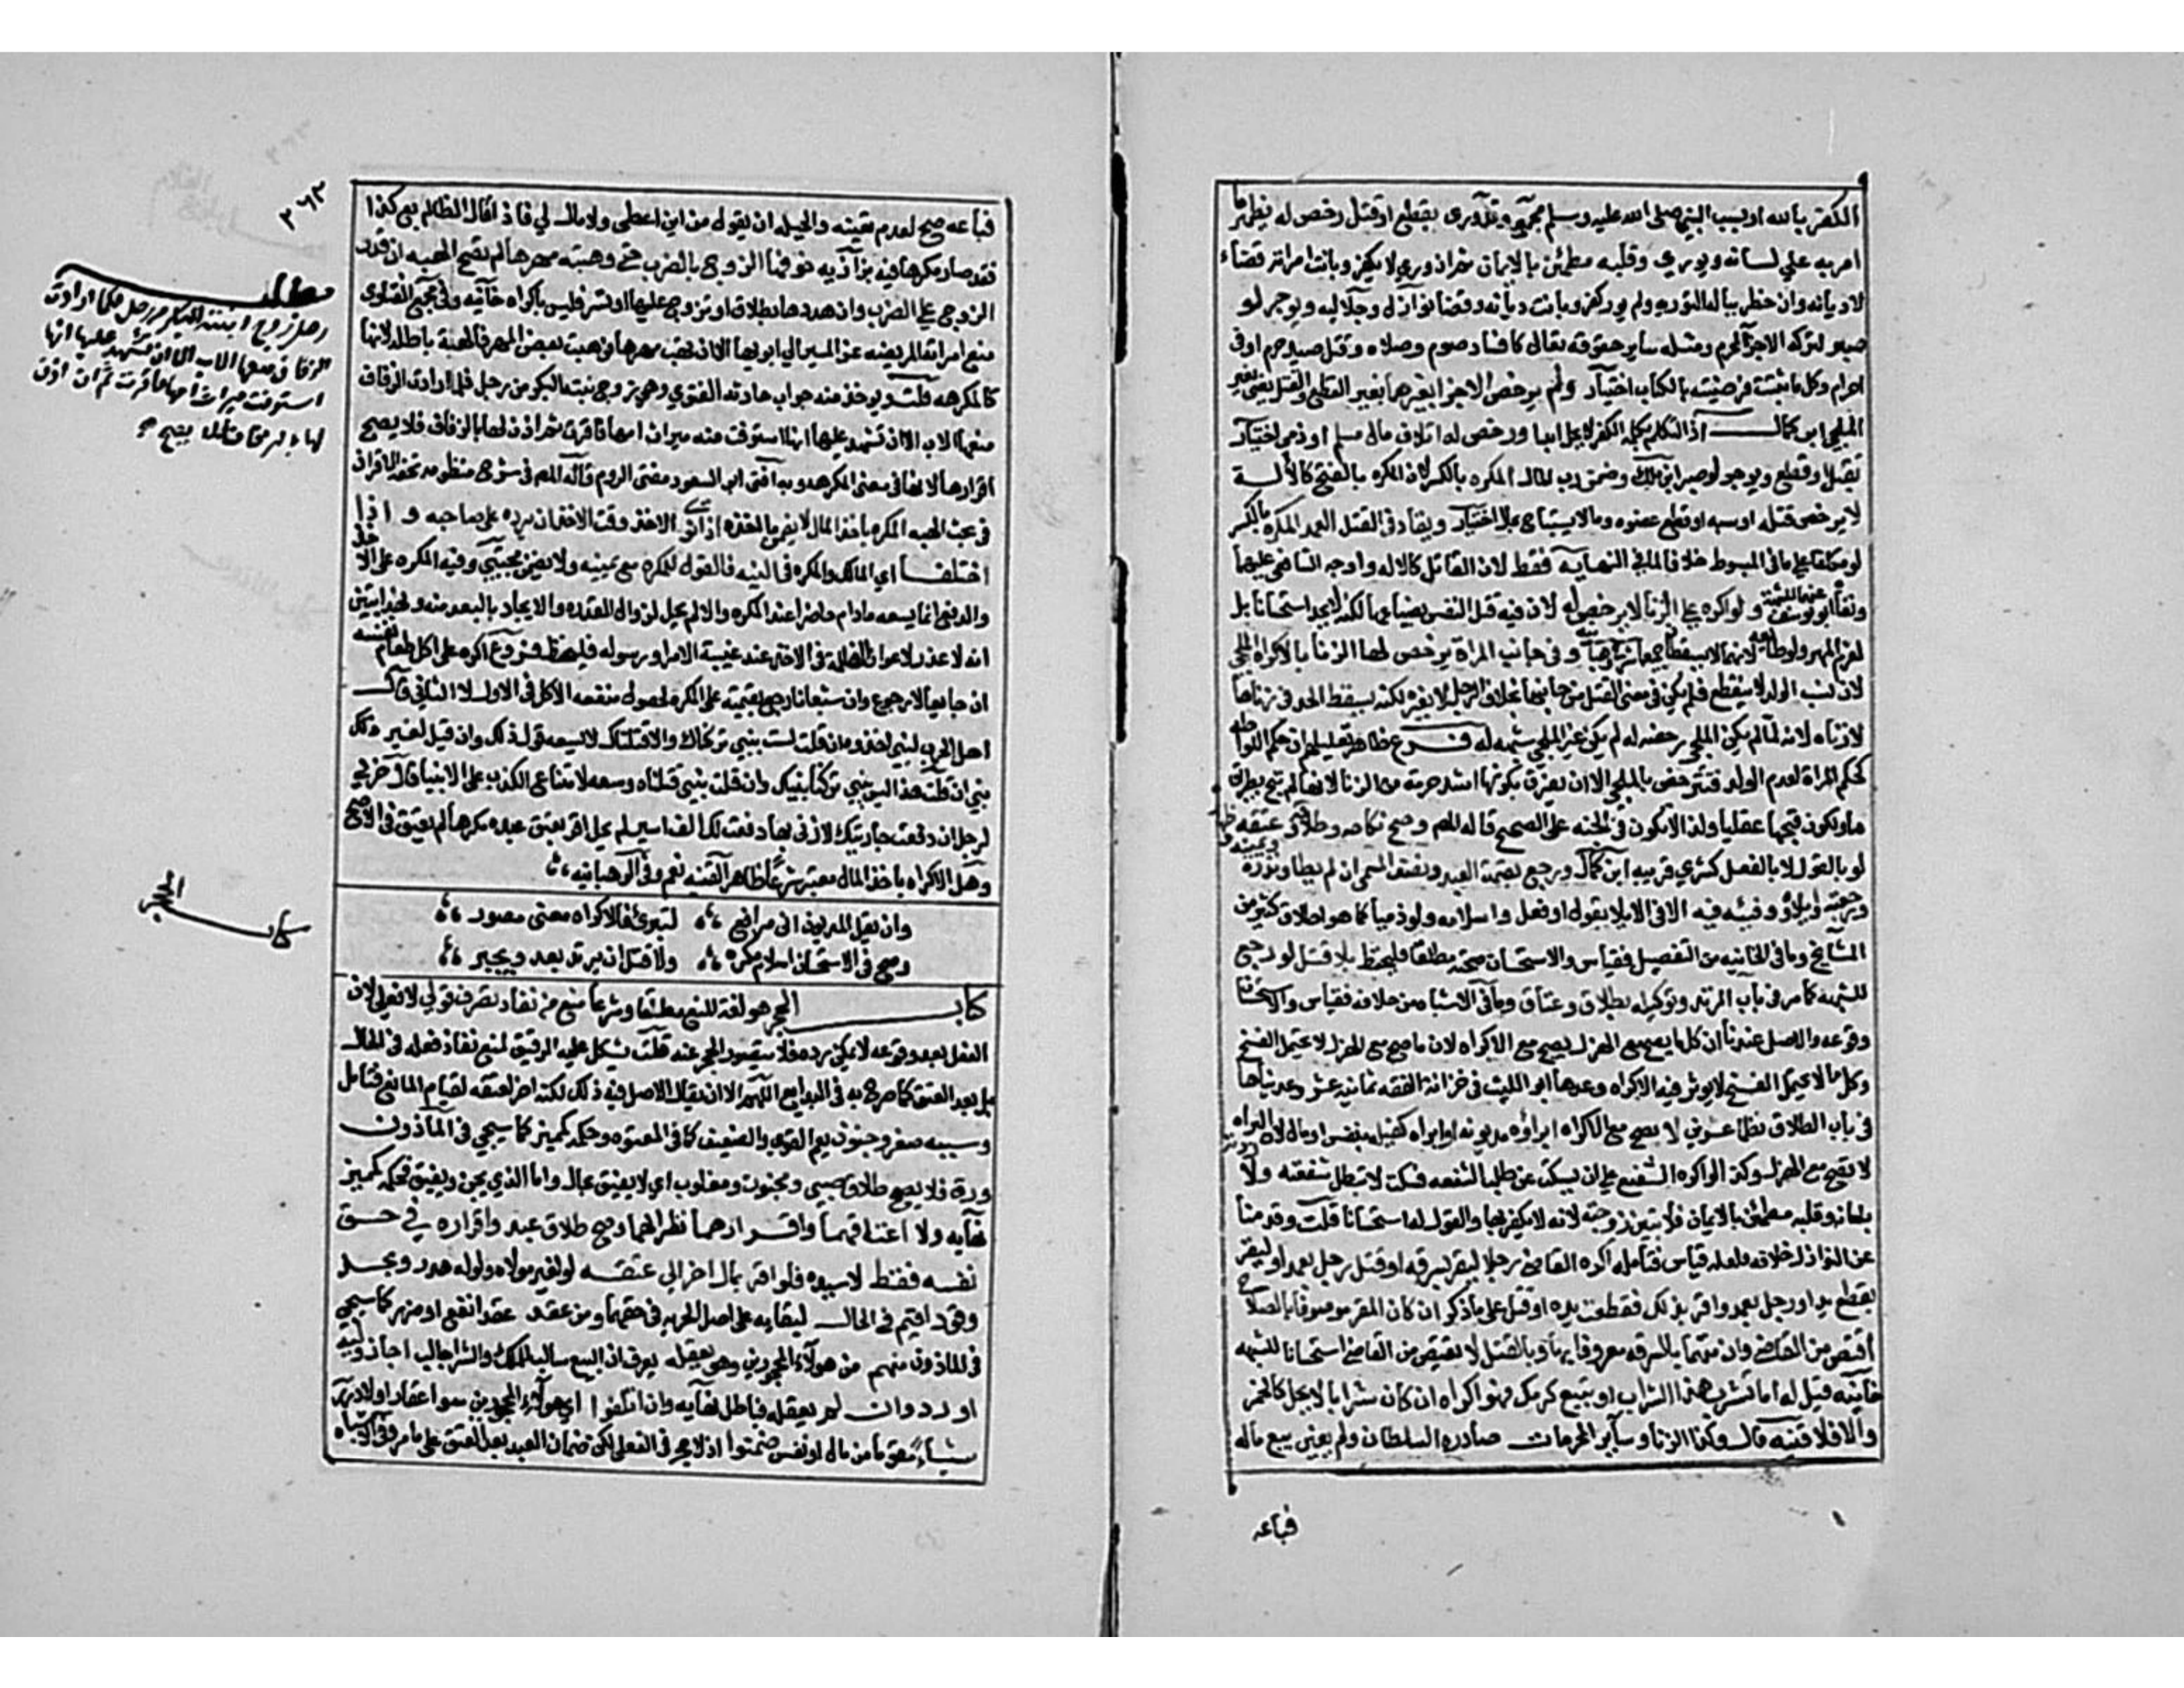 الكفر بالله او بسب النبي صلى الله عليه وسلم بقطع او قتل رخص له يظهر ما
امر به علي لسانه ويوري وقلبه مطمئن بالايمان ثم ان وري لا يكفر وبانت امراته قضاء
لا ديانه وان خطر بباله التوريه ولم يور كفر وبانت ديانه وقضا نوازل وجلاليه ويوجر لو
صبر لتركه الاجرا المحرم ومثله ساير حقوقه تعالي كافساد صوم وصلاه وقتل صيد حرم او في
احرام وكل ما ثبتت فرضيته بالكتاب اختيار ولم يرخص الاجرا بغيرهما بغير القطع والقتل يعني بغير
الملجي ابن كمال اذ التكلم بكلمة الكفر لا يحل ابدا ورخص له اتلاف مال مسلم او ذمي اختيار
بقتل او قطع ويوجر لو صبر ابن ملك وضمن رب المال المكره بالكسر لان المكره بالفتح كالالة
لا يرخص قتله او سبه او قطع عضوه وما لا يستباح بحال اختيار ويقاد في القتل العمد المكره بالكسر
لو مكلفا علي ما في المبسوط خلافا لما في النهايه فقط لان القاتل كالاله واوجبه الشافعي عليهما
ونفاه ابو يوسف عنهما للشبهة ولو اكره علي الزنا لا يرخص له لان فيه قتل النفس بضياعها لكنه لا يحد استحسانا بل
يغرم المهر ولو طائعه لانهما لا يسقطان جميعا وفي جانب المراة يرخص لها الزنا بالاكراه الملجي
لان نسب الولد لا ينقطع فلم يكن في معني القتل من جانبها بخلاف الرجل لا بغيره لكنه يسقط الحد في زناها
لا زناه لانه لما لم يكن الملجي رخصه له لم يكن غير الملجي شبهه له فرع ظاهر تعليلهم ان حكم اللواطه
كحكم المراة لعدم الولد فترخص بالملجي الا ان يفرق بكونها اشد حرمة من الزنا لانها لم تبح بطريق
ما ولكون قبحها عقليا ولذا لا تكون في الجنه علي الصحيح قاله المص وصح نكاحه وطلاقه وعتقه
لو بالقول لا بالفعل كشري قريبه ابن كمال ورجع بقيمة العبد ونصف المسمي ان لم يطا ونذره
ورجعته وايلاؤه وفيئه فيه اي في الايلا بقول او فعل واسلامه ولو ذميا كما هو اطلاق كثير من
المشايخ وما في الخانيه من التفصيل فقياس والاستحسان صحته مطلقا فليحفظ بلا قتل لو رجع
للشبهه كما مر في باب المرتد وتوكيله بطلاق وعتاق وما في الاشباه من خلافه فقياس والاستحسان
وقوعه والاصل عندنا ان كل ما يصح مع الهزل يصح مع الاكراه لان ما صح مع الهزل لا يحتمل الفسخ
وكل ما لا يحتمل الفسخ لا يوثر فيه الاكراه وعدها ابو الليث في خزانة الفقه ثمانيه عشر وعديناها
في باب الطلاق نظما عشرين لا يصح مع الاكراه ابراؤه مديونه او ابراه كفيله بنفس او مال لان البراه
لا تصح مع الهزل وكذا لو اكره الشفيع علي ان يسكت عن طلب الشفعه فسكت لا تبطل شفعته ولا ردته
بلسانه وقلبه مطمئن بالايمان فلا تبين زوجته لانه لا يكفر بها والقول له استحسانا قلت وقدمنا
عن النوازل خلافه فلعله قياس فتامله اكره القاضي رجلا ليقر بسرقه او قتل رجل بعمد او ليقر
بقطع يد رجل بعمد واقر بذلك فقطعت يده او قتل علي ما ذكر ان كان المقر موصوفا بالصلاح
اقتص من القاضي وان متهما بالسرقه معروفا بها وبالقتل لا يقتص من القاضي استحسانا للشبهه
خانيه قيل له اما تشرب هذا الشراب او تبيع كرمك فهو اكراه ان كان شرابا لا يحل كالخمر
والا فلا قنيه قال وكذا الزنا وسائر المحرمات صادره السلطان ولم يعين بيع ماله
فباعه
٣٦٣
فباعه صح لعدم تعينه والحيله ان يقول من اين اعطى ولا مال لي فاذا قال الظالم بع كذا
فقد صار مكرها فيه بزازيه خوفها الزوج بالضرب حتى وهبته مهرها لم تصح الهبه ان قدر
الزوج علي الضرب وان هددها بطلاق او تزوج عليها او تسر فليس باكراه خانيه وفي مجمع الفتاوى
منع امراته المريضه عن المسير الي ابويها الا ان تهب مهرها فوهبت بعض المهر فالهبة باطله لانها
كالمكرهه قلت ويوخذ منه جواب حادثه الفتوي وهي زوج بنته البكر من رجل فلما ارادت الزفاف
منعها الاب الا ان تشهد عليها انها استوفت منه ميراث امها فاقرت ثم اذن لها بالزفاف فلا يصح
اقرارها لانها في معنى المكرهه وبه افتى ابو السعود مفتى الروم قاله المص في شرح منظومته تحفة الاقران
في بحث الهبه المكره باخذ المال لا يضمن ما اخذه اذا نوى الاخذ وقت الاخذ ان يرده على صاحبه واذا
اختلفا اي المالك والمكره في النيه فالقول للمكره مع يمينه ولا يضمن مجتبي وفيه المكره على الاخذ
والدفع انما يسعه مادام حاضرا عند المكره والا لم يحل لزوال القدره والالجاء بالبعد منه وبهذا تبين
انه لا عذر لاعوان الظلمه في الاخذ عند غيبة الامر او رسوله فليحفظ فروع اكره على اكل طعام نفسه
ان جايعا لا رجوع وان شبعانا رجع بقيمته على المكره لحصول منفعه الاكل في الاول لا الثاني قال
اهل الحرب لنبي اخذوه ان قلت لست بنبي تركناك والا قتلناك لا يسعه قول ذلك وان قيل لغير
نبي ان قلت هذا ليس بنبي تركنا نبيك وان قلت نبي قتلناه وسعه لامتناع الكذب على الانبيا قال حربي
لرجل ان دفعت جاريتك لازني بها دفعت لك الف اسير لم يحل اقر بعتق عبده مكرها لم يعتق في الاصح
وهل الاكراه باخذ المال معتبر شرعا ظاهر القنيه نعم وفي الوهبانيه
وان يقل المديون اني مرافع لتبرئ فالاكراه معنى مصور
وصح في الاستحسان اسلام مكره ولا قتل ان يرتد بعد ويجبر
كتاب الحجر هو لغة المنع مطلقا وشرعا منع من نفاذ تصرف قولي لا فعلي لان
الفعل بعد وقوعه لا يمكن رده فلا يتصور الحجر عنه قلت يشكل عليه الرقيق لمنع نفاذ فعله في الحال
بل بعد العتق كما صرح به في البدايع اللهم الا ان يقال الاصل فيه ذلك لكنه اخر لعتقه لقيام المانع فتامل
وسببه صغر وجنون يعم القوي والضعيف كما في المعتوه وحكمه كمميز كما سيجي في الماذون
ورق فلا يصح طلاق صبي ومجنون ومغلوب اي لا يفيق بحال واما الذي يجن ويفيق فحكمه كمميز
نهايه ولا اعتاقهما واقرارهما نظرا لهما وصح طلاق عبد واقراره في حق
نفسه فقط لا سيده فلو اقر بمال اخر الي عتقه لو لغير مولاه ولو له هدر وبحد
وقود اقيم في الحال لبقايه على اصل الحريه في حقهما ومن عقد عقدا نفع او ضر كما سيجي
في الماذون منهم من هولاء المحجورين وهو يعقله يعرف ان البيع سالب للملك والشرا جالب اجاز وليه
او رد وان لم يعقله فباطل نهايه وان اتلفوا اي هولاء المحجورين سوا عقلوا او لا درر
شيئا متقوما من مال او نفس ضمنوا اذ لا حجر في الفعلي لكن ضمان العبد بعد العتق على ما مر وفي الاشباه
مطلب
رجل زوج ابنته البكر من رجل فلما ارادت
الزفاف منعها الاب الا ان تشهد عليها انها
استوفت ميراث امها فاقرت ثم ان اذن
لها
كتاب الحجر